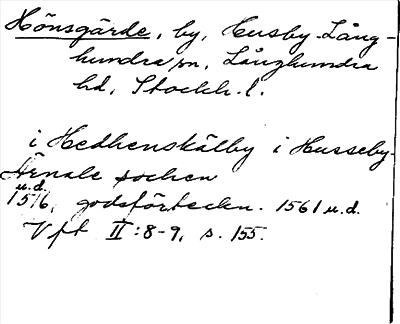 Hönsgärde, by, Husby-Lång-
hundra sn, Långhundra
hd, Stockh. l.
i Hedhenskälby i Husseby-
Ärnale sochen
u.d.
1516, godsförteckn. 1561 u.d.
Vft II:8-9, s. 155.